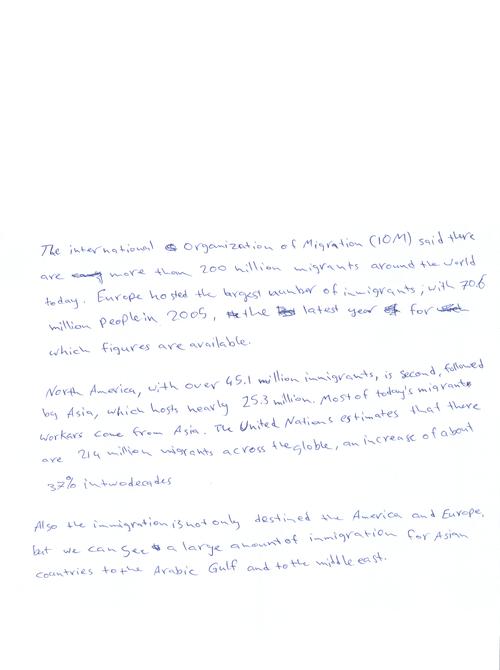 The international Organization of Migration (IOM) said there
are more than 200 million migrants around the world
today. Europe hosted the largest number of immigrants, with 70.6
million people in 2005, the latest year for
which figures are available.
North America, with over 45.1 million immigrants, is second, followed
by Asia, which hosts nearly 25.3 million. Most of today's migrants
workers come from Asia. The United Nations estimates that there
are 214 million migrants across the globe, an increase of about
37% in two decades
Also the immigration is not only destined the America and Europe,
but we can see a large amount of immigration for Asian
countries to the Arabic Gulf and to the middle east.